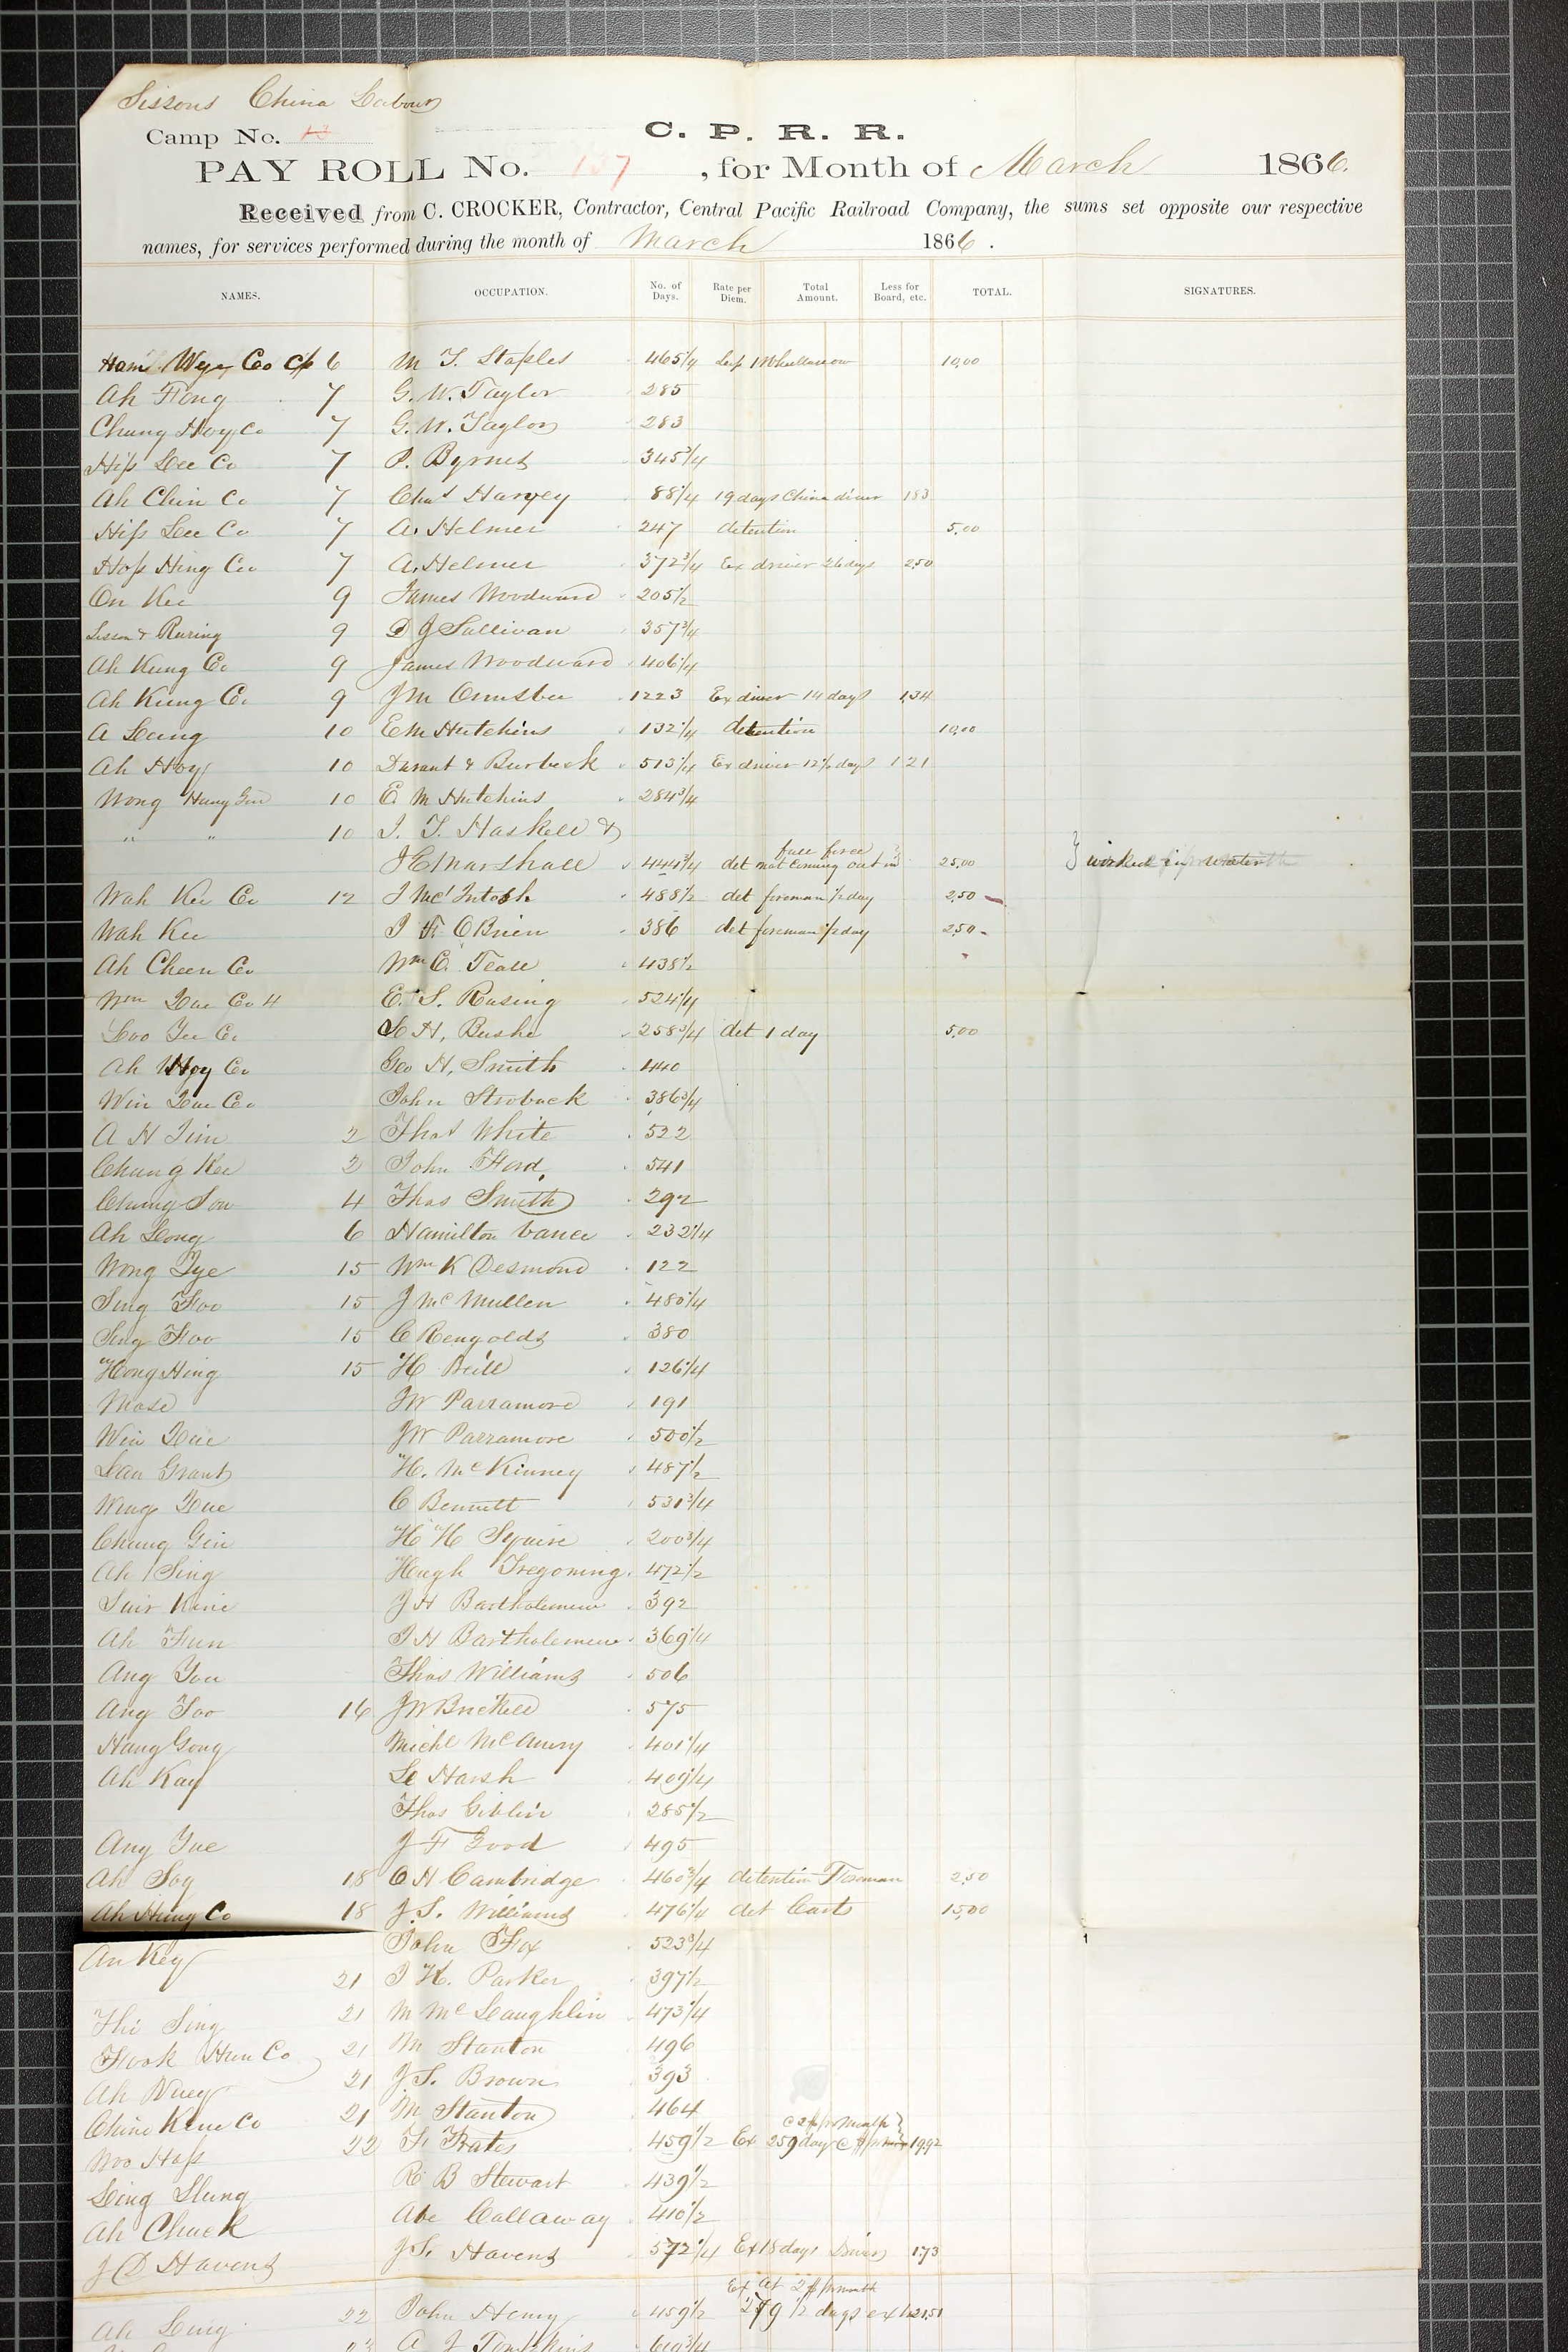 Sissons China Labour
Camp No. 13
C. P. R. R.
PAY ROLL No. 137, for Month of March 1866.
Received from C. CROCKER, Contractor, Central Pacific Railroad Company, the sums set opposite our respective
names, for services performed during the month of March 1866.
NAMES. OCCUPATION. No. of Days. Rate per Diem. Total Amount. Less for Board, etc. TOTAL. SIGNATURES.
Co 6 M T. Staples 465 1/4 10,00
Ah Fong 7 G. W. Taylor 285
Chung Hoy Co 7 G. W. Taylor 283
Hip Lee Co 7 P. Byrnes 345 3/4
Ah Chin Co 7 Chas Harvey 88 1/4 19 days China diner 183
Hip Lee Co 7 A. Helmer 247 detention 5,00
Hop Hing Co 7 A. Helmer 372 3/4 Ex driver 26 days 2,50
On Kee 9 James Woodward 205 1/2
9 D J Sullivan 357 3/4
Ah Kung Co 9 James Woodward 406 1/4
Ah Kung Co 9 J M Ormsbee 1223 Ex diner 14 days 1,34
A Leung 10 E M Hutchins 132 1/4 detention 10,00
Ah Hoy 10 Durant & Burbeck 513 1/4 Ex driver 12 1/2 days 1 21
Wong Hung 10 E M Hutchins 284 3/4
" " 10 J. T. Haskell &
full force
J E Marshall 444 3/4 det not coming out in 25,00 worked in water
Wah Kee Co 12 J McIntosh 488 1/2 det foreman 1/2 day 2,50
Wah Kee J F. OBrien 386 det foreman 1/2 day 2,50
Ah Cheen Co Wm C. Teall 438 1/2
Co 4 E. S. Rusing 524 1/4
Loo Yee Co L H. Bushe 258 3/4 det 1 day 5,00
Ah Hoy Co Geo H. Smith 440
Co John Stroback 386 3/4
A H Jim 2 Thos White 522
Chung Kee 2 John Ford 541
Chung Son 4 Thos Smith 292
Ah Leong 6 Hamilton Vance 232 1/4
Wong Tye 15 Wm K Desmond 122
Sing Foo 15 J McMullen 480 1/4
Sing Foo 15 C Rengolds 380
Hong Hing 15 H Brill 126 1/4
Mose J W Parramore 191
J W Parramore 500 1/2
Grant H. McKinney 487 1/2
C Bennett 531 3/4
Chung Gin H H Squire 200 3/4
Ah Sing Hugh Tregoning 472 1/2
J H Bartholemew 392
Ah Fun J H Bartholemew 369 1/4
Ang You Thos Williams 506
Ang Foo 16 J W Brickell 575
Hang Gong Michl McAvery 401 1/4
Ah Kay Le Harsh 409 1/4
Thos Giblin 285 1/2
Ang Yue J F Good 495
Ah Soy 18 O H Cambridge 460 3/4 detention Foreman 2,50
Ah Hung Co 18 J. S. Williams 476 1/4 det Carts 15,00
An Key John Fox 523 3/4
21 J H. Parker 397 1/2
Thi Sing 21 M McLaughlin 473 1/4
Hook Hun Co 21 M Stanton 496
Ah Wuey 21 J. S. Brown 393
Co 21 M Stanton 464
Woo Hop 22 F. Frates 459 1/2 Ex 259 days 19,92
Ling Slung R B Stewart 439 1/2
Ah Chuck Abe Callaway 410 1/2
J D Havens J S. Havens 572 1/4 Ex 18 days 1,73
Ah Leung 22 John Henry 459 1/2 279 1/2 days 21,51
A J Tompkins